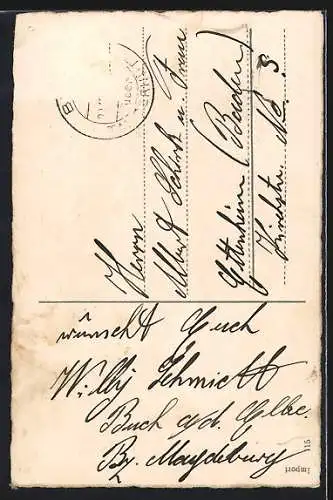 Herrn
Albert Schenk u. Frau
Ettenheim (Baden)
No. 3
wünscht Euch
Willy Schmidt
Buch a/d. Elbe.
Bz. Magdeburg
Import
115